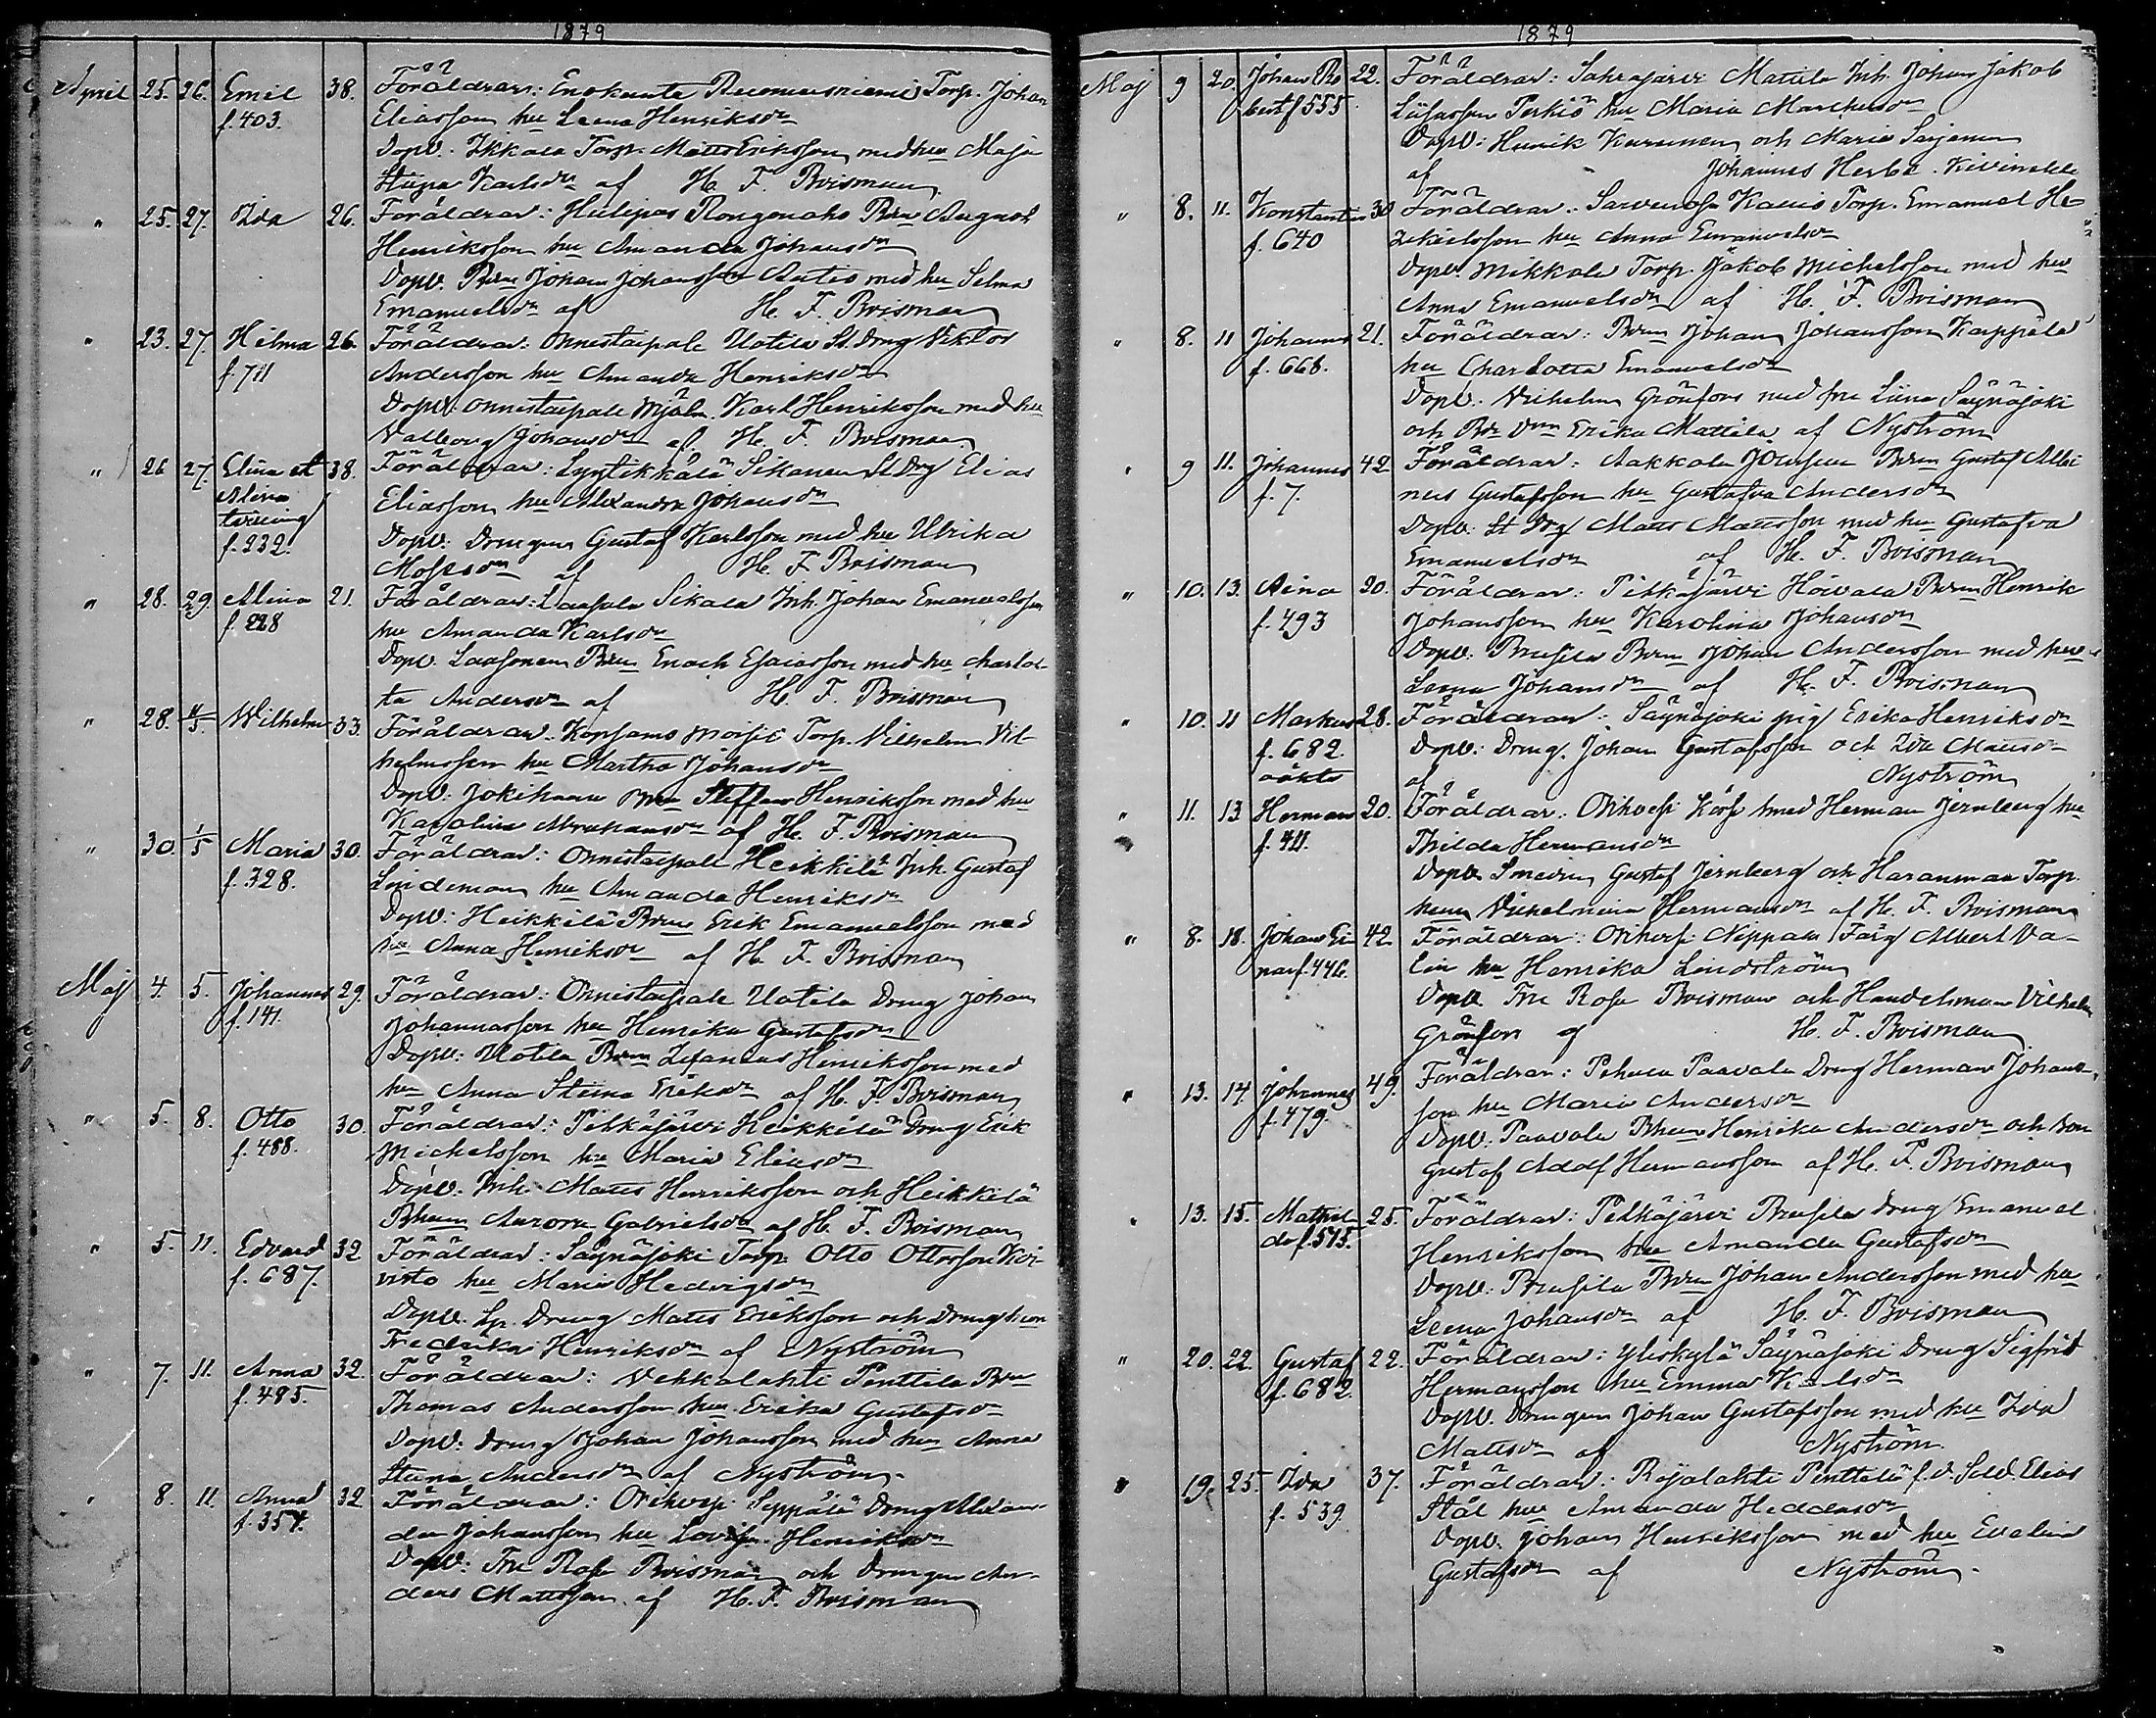 1879
April 25. 26. Emil 38. Föräldrar: Enokunta Torp. Johan
f. 403. Eliasson hu Leena Henriksdr
Dopv. Ikkala Torp. Matts Eriksson med hu Maja
Stiina Karlsdr af H. F. Boisman
" 25. 27. Ida 26. Föräldrar: Rongonaho Bdn August
Henriksson hu Amanda Johansdr
Dopv. Bdn Johan Johansson med hu Selma
Emanuelsdr af H. F. Boisman
" 23. 27. Hilma 26. Föräldrar: Onnistaipale Uotila St. Dreng Viktor
f. 711 Andersson hu Amanda Henriksdr
Dopv. Onnistaipale Karl Henriksson med hu
Valborg Johansdr af H. F. Boisman
" 26 27. Elina et 38. Föräldrar: Lyytikkälä Sikanen St Drg Elias
Alina Eliasson hu Alexandra Johansdr
tvilling Dopv: Drengen Gustaf Karlsson med hu Ulrika
f. 232. Mosesdr af H. F. Boisman
" 28. 29. Alina 21. Föräldrar: Sikala Inh. Johan Emanuelsson
f. 228 hu Amanda Karlsdr
Dopv. Laasonen Bdn Enoch Esaiasson med hu Charlot-
ta Andersdr af H. F. Boisman
" 28. 4/5. Wilhelm 33. Föräldrar: Kopsamo Moisio Torp. Vilhelm Vil-
helmsson hu Martha Johansdr
Dopv: Jokihaara Bdn Steffan Henriksson med hu
Karolina Abrahamsdr af H. F. Boisman
" 30. 1/5 Maria 30. Föräldrar: Onnistaipale Heikkilä Inh. Gustaf
f. 328. Lindeman hu Amanda Henriksdr
Dopv: Heikkilä Bdn Erik Emanuelsson med
hu Anna Henriksdr af H. F. Boisman
Maj 4. 5. Johannes 29. Föräldrar: Onnistaipale Uotila Dreng Johan
f. 141. Johannasson hu Henrika Gustafsdr
Dopv: Uotila Bdn Zefanias Henriksson med
hu Anna Stina Eriksdr af H. F. Boisman
" 5. 8. Otto 30. Föräldrar: Pitkäjärvi Heikkilä Dreng Erik
f. 488. Michelsson hu Maria Eliasdr
Dopv. Inh. Matts Henriksson och Heikkilä
Bhun Aurora Gabrielsdr af H. F. Boisman
" 5. 11. Edvard 32 Föräldrar: Säynäjoki Torp. Otto Ottosson Koi-
f. 687. visto hu Maria Hedvigsdr
Dopv. Dreng Matts Eriksson och Dreng hun
Fredrika Henriksdr af Nyström
" 7. 11. Anna 32. Föräldrar: Vehkalahti Penttilä Bdn
f. 485. Thomas Andersson hu Erika Gustafsdr
Dopv: Dreng Johan Johansson med hu Anna
Stiina Andersdr af Nyström.
" 8. 11. Anna 32 Föräldrar: Orihvesi Seppälä Dreng Alexan-
f. 354. der Johansson hu Lovisa Henriksdr
Dopv: Frk Rosa Boisman och Drengen An-
ders Mattsson af H. F. Boisman
1879
Maj 9 20. Johan Ro 22. Föräldrar: Sahrajärvi Mattila Inh. Johan Jakob
bert f 555. Perkiö hu Maria
Dopv: Henrik och Maria
af Johannes
" 8. 11. Konstantin 30 Föräldrar: Torp. Emanuel He-
f. 640 zekielsson hu Anna Emanuelsdr
Dopv. Mikkola Torp. Jakob Michelsson med hu
Anna Emanuelsdr af H. F. Boisman
" 8. 11 Johannes 21. Föräldrar: Bdn Johan Johansson
f. 668. hu Charlotta Emanuelsdr
Dopv. Vilhelm Grönfors med fru Liina Säynäjoki
och Erika Mattila af Nyström
" 9 11. Johannes 42 Föräldrar: Aakkola Bdn Gustaf Albi
f. 7. nus Gustafsson hu Gustafva Andersdr
Dopv: St Drg Matts Mattsson med hu Gustafva
Emanuelsdr af H. F. Boisman
" 10. 13. Aina 20. Föräldrar: Pitkäjärvi Bdn Henrik
f. 493 Johansson hu Karolina Johansdr
Dopv: Prusila Bdn Johan Andersson med hu
Leena Johansdr af H. F. Boisman
" 10. 11 Markus 28. Föräldrar: Säynäjoki pig Erika Henriksdr
f. 682. Dopv: Dreng. Johan Gustafsson och Ida Mattsdr
oäkta af Nyström
" 11. 13 Herman 20. Föräldrar: Orihvesi Smed Herman Jernberg hu
f. 411. Thilda Hermansdr
Dopv. Smeden Gustaf Jernberg och Haranmaa Torp.
Vilhelmina Hermansdr af H. F. Boisman
" 8. 18. Johan Ei 42 Föräldrar: Orihvesi Neppala Färg Albert Va-
nar f. 446. lin hu Henrika Lindström
Dopv. Frk Rosa Boisman och Handelsman Vilhelm
Grönfors af H. F. Boisman
" 13. 14. Johannes 49. Föräldrar: Pehula Paavola Dreng Herman Johans-
f. 479. son hu Maria Andersdr
Dopv: Paavola Bhun Henrika Andersdr och son
Gustaf Adolf Hermansson af H. F. Boisman
" 13. 15. Mathil- 25. Föräldrar: Pitkäjärvi Prusila Dreng Emanuel
da f. 515. Henriksson hu Amanda Gustafsdr
Dopv: Prusila Bdn Johan Andersson med hu
Leena Johansdr af H. F. Boisman
" 20. 22. Gustaf 22. Föräldrar: Yliskylä Säynäjoki Dreng Sigfrid
f. 682. Hermansson hu Emma Karlsdr
Dopv. Drengen Johan Gustafsson med hu Ida
Mattsdr af Nyström
" 19. 25. Ida 37. Föräldrar: Penttilä f. d. Sold. Elias
f. 539 Stål hu Amanda
Dopv. Johan Henriksson med hu Evalina
Gustafsdr af Nyström.